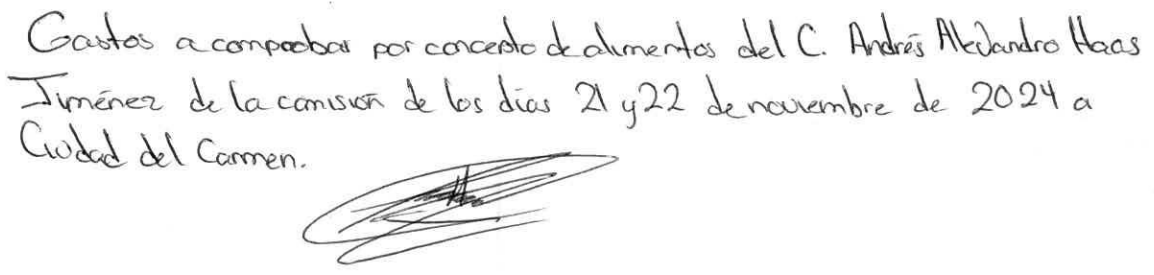 Gastos a comprobar por concepto de alimentos del C. Andrés Alejandro Haas
Jiménez de la comisión de los días 21 y 22 de noviembre de 2024 a
Ciudad del Carmen.